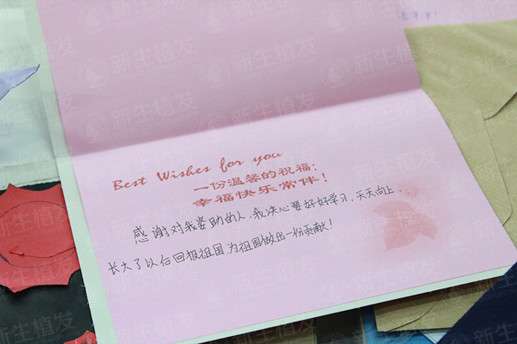 Best Wishes for you
一份温馨的祝福:
幸福快乐常伴!
感谢对我资助的人,我决心要好好学习,天天向上,
长大了以后回报祖国为祖国做出一份贡献!
新生植发